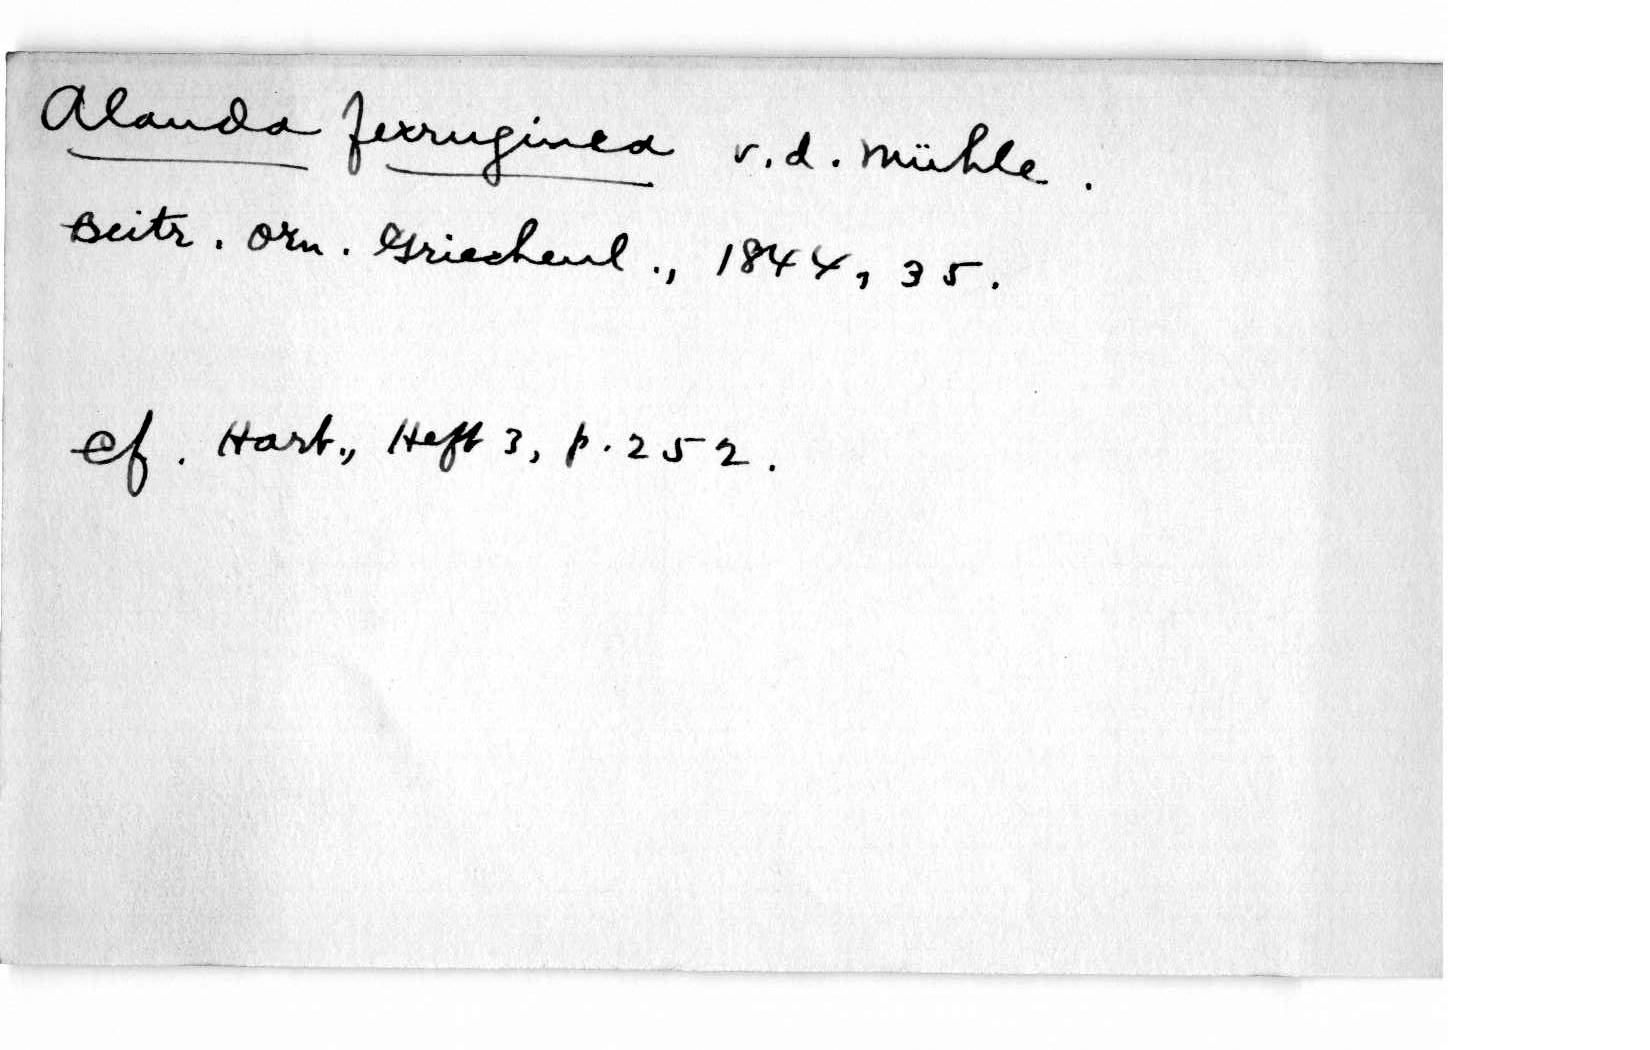 Alauda ferruginea v.d. Mühle.
Beitr. Orn. Griechenl., 1844, 35.
cf. Hart., Heft 3, p. 252.